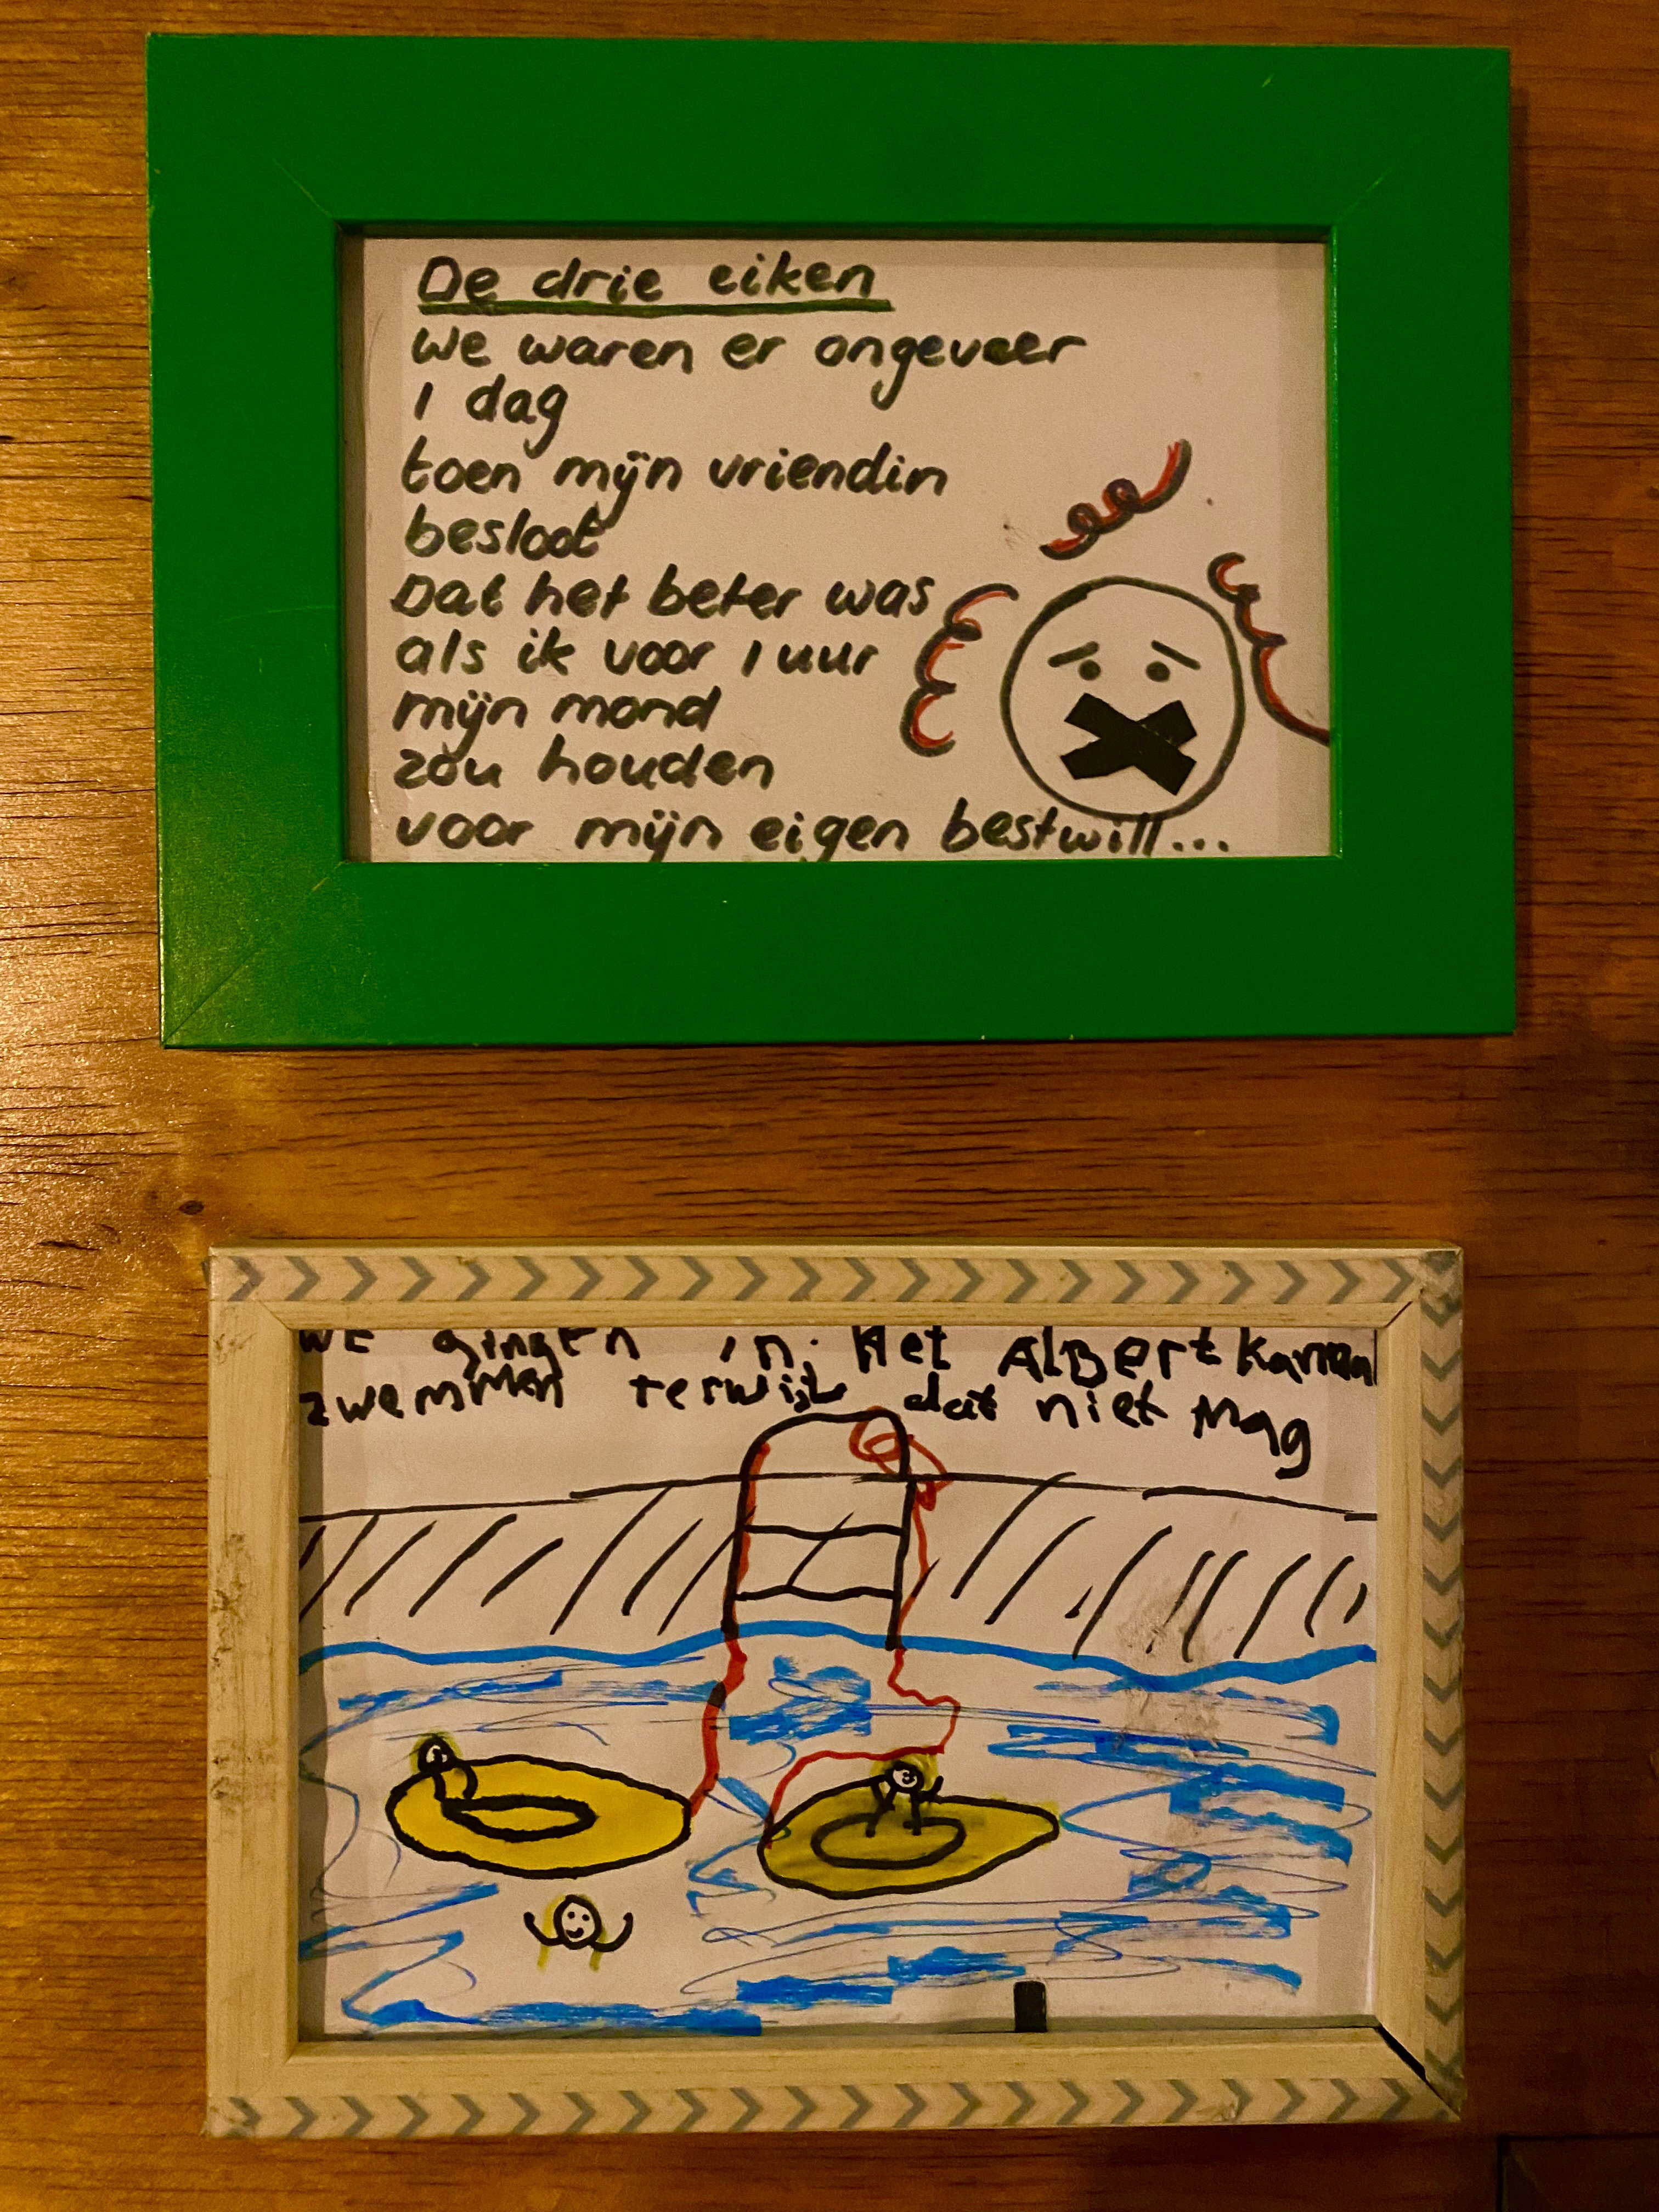 De drie eiken
We waren er ongeveer
1 dag
toen mijn vriendin
besloot
Dat het beter was
als ik voor 1 uur
mijn mond
zou houden
voor mijn eigen bestwill...
We gingen in het Albertkanaal
zwemmen terwijl dat niet mag